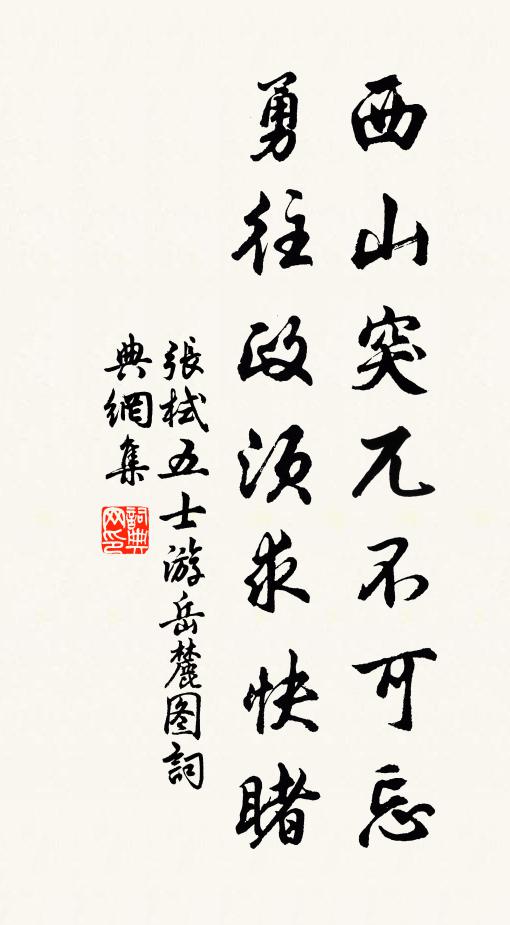 西山突兀不可忘
勇往政须求快睹
張栻五士游岳麓图詞
典網集
詞典网印